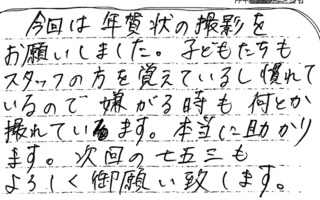 今回は年賀状の撮影を
お願いしました。子どもたちも
スタッフの方を覚えているし慣れて
いるので嫌がる時も何とか
撮れています。本当に助かり
ます。次回の七五三も
よろしく御願い致します。